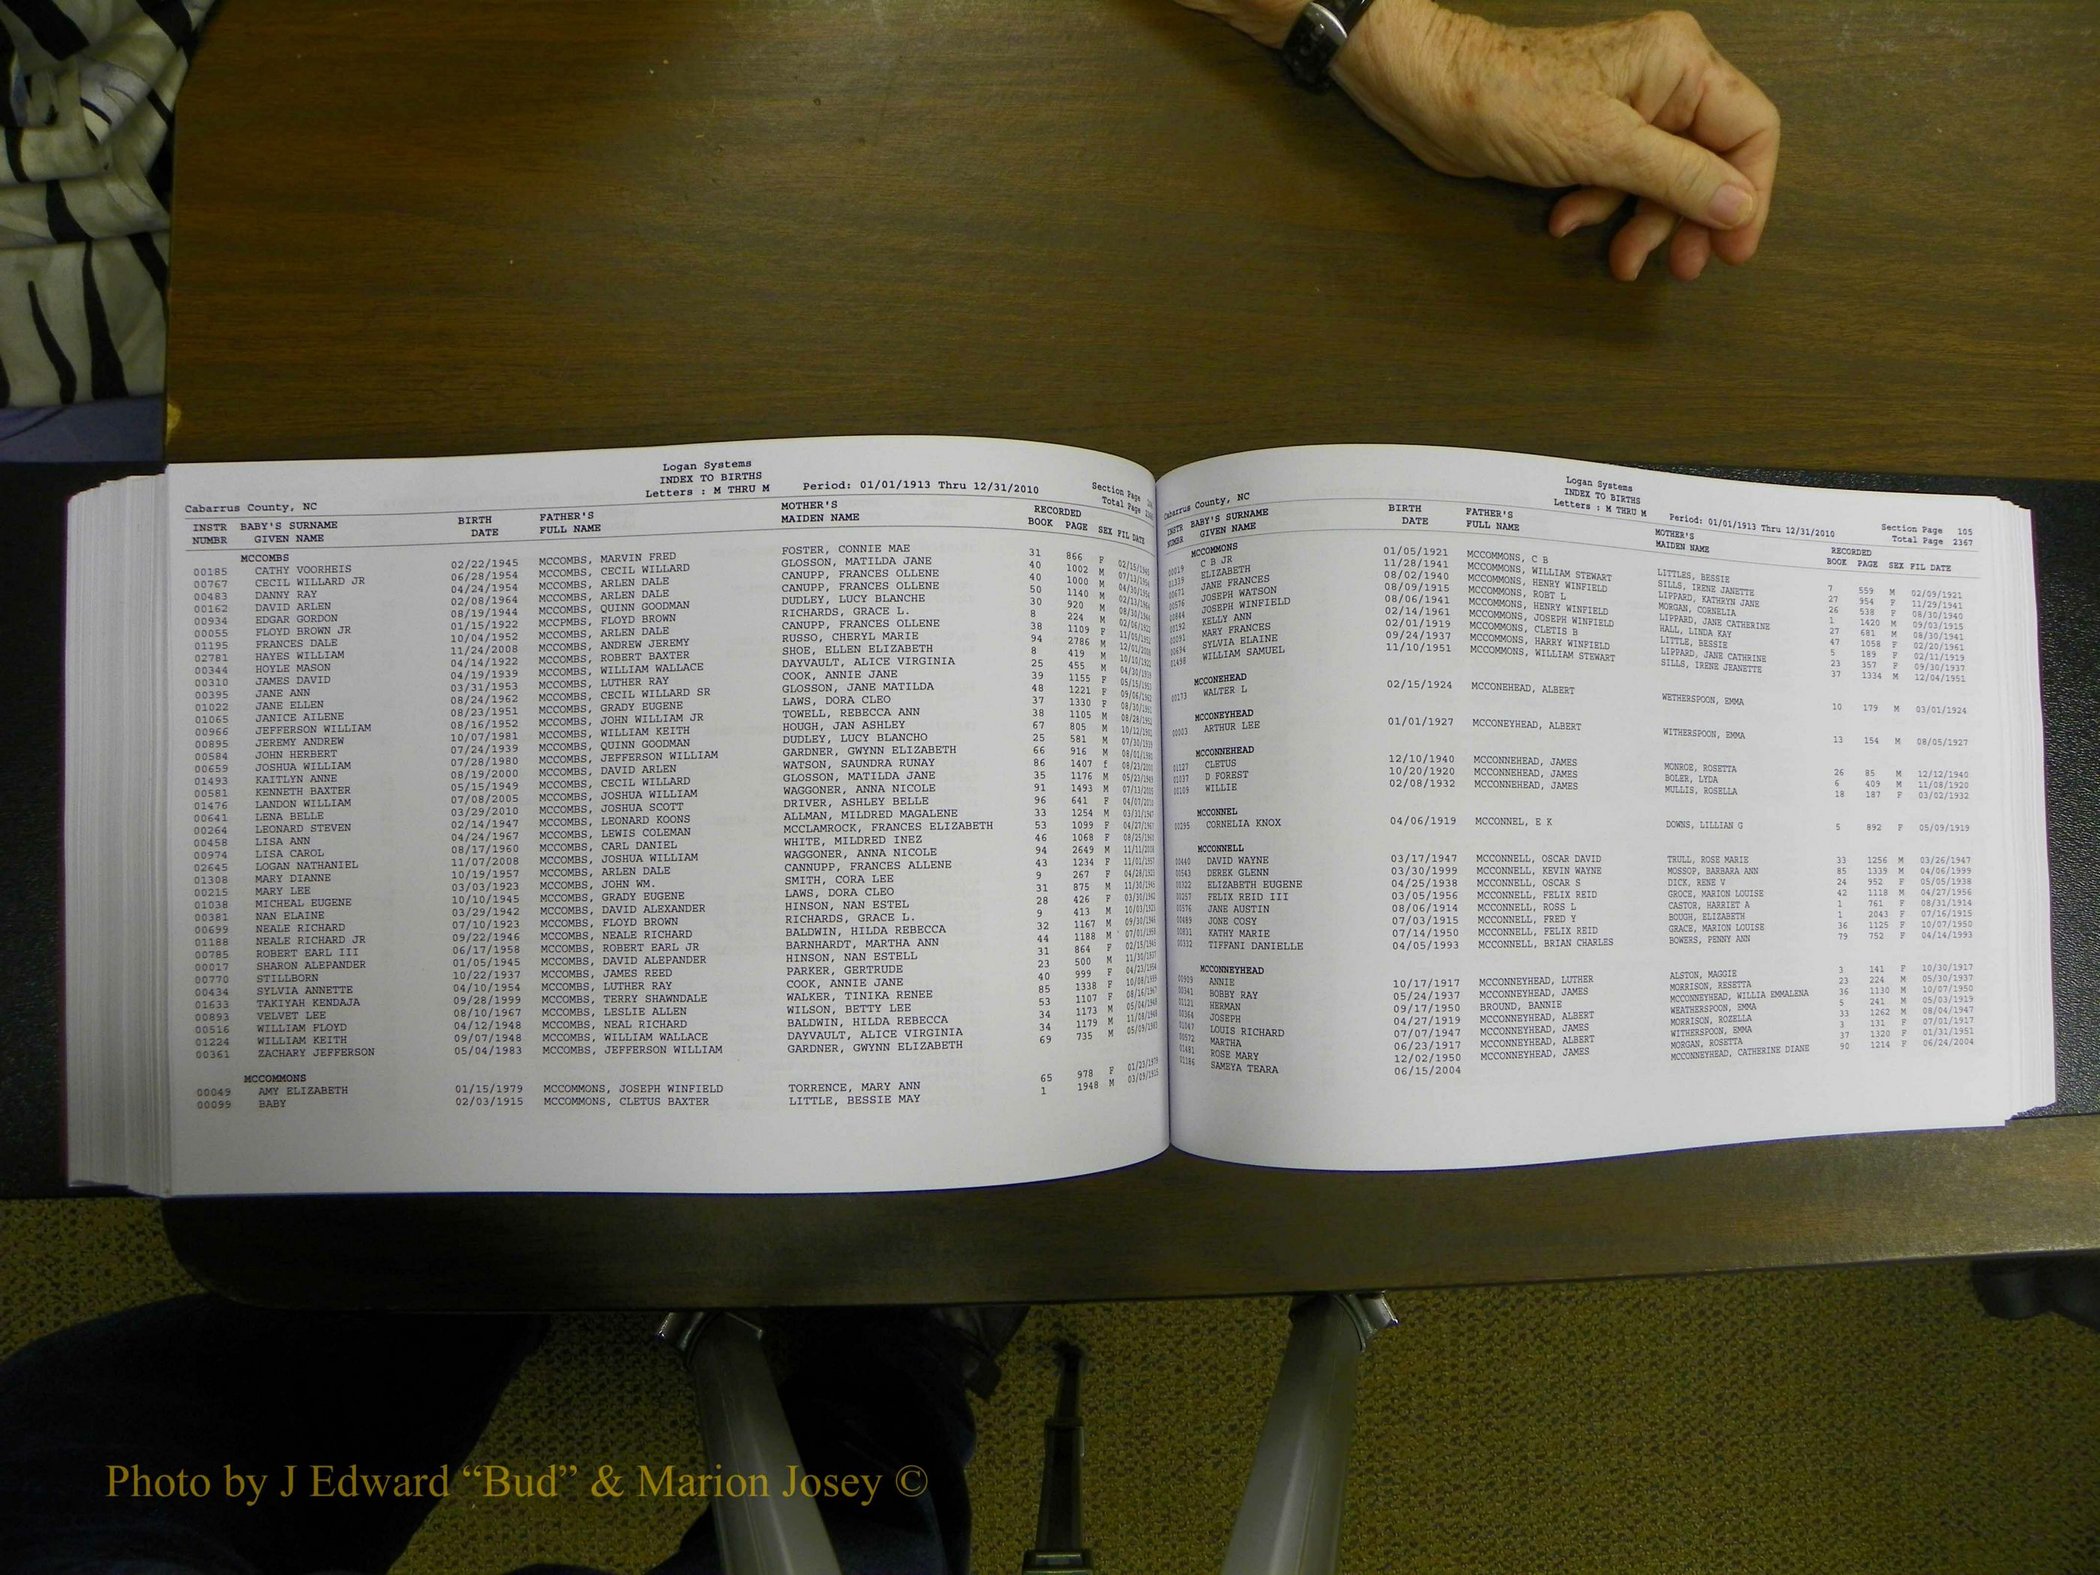 Logan Systems
INDEX TO BIRTHS
Cabarrus County, NC Letters : M THRU M Period: 01/01/1913 Thru 12/31/2010 Section Page Total Page
INSTR NUMBR BABY'S SURNAME GIVEN NAME BIRTH DATE FATHER'S FULL NAME MOTHER'S MAIDEN NAME RECORDED BOOK PAGE SEX FIL DATE
MCCOMBS
00185 CATHY VOORHEIS 02/22/1945 MCCOMBS, MARVIN FRED FOSTER, CONNIE MAE 31 866 F
00767 CECIL WILLARD JR 06/28/1954 MCCOMBS, CECIL WILLARD GLOSSON, MATILDA JANE 40 1002 M
00483 DANNY RAY 04/24/1954 MCCOMBS, ARLEN DALE CANUPP, FRANCES OLLENE 40 1000 M
00162 DAVID ARLEN 02/08/1964 MCCOMBS, ARLEN DALE CANUPP, FRANCES OLLENE 50 1140 M
00934 EDGAR GORDON 08/19/1944 MCCOMBS, QUINN GOODMAN DUDLEY, LUCY BLANCHE 30 920 M
00055 FLOYD BROWN JR 01/15/1922 MCCPMBS, FLOYD BROWN RICHARDS, GRACE L. 8 224 M
01195 FRANCES DALE 10/04/1952 MCCOMBS, ARLEN DALE CANUPP, FRANCES OLLENE 38 1109 F
02781 HAYES WILLIAM 11/24/2008 MCCOMBS, ANDREW JEREMY RUSSO, CHERYL MARIE 94 2786 M
00344 HOYLE MASON 04/14/1922 MCCOMBS, ROBERT BAXTER SHOE, ELLEN ELIZABETH 8 419 M
00310 JAMES DAVID 04/19/1939 MCCOMBS, WILLIAM WALLACE DAYVAULT, ALICE VIRGINIA 25 455 M
00395 JANE ANN 03/31/1953 MCCOMBS, LUTHER RAY COOK, ANNIE JANE 39 1155 F
01022 JANE ELLEN 08/24/1962 MCCOMBS, CECIL WILLARD SR GLOSSON, JANE MATILDA 48 1221 F
01065 JANICE AILENE 08/23/1951 MCCOMBS, GRADY EUGENE LAWS, DORA CLEO 37 1330 F
00966 JEFFERSON WILLIAM 08/16/1952 MCCOMBS, JOHN WILLIAM JR TOWELL, REBECCA ANN 38 1105 M
00895 JEREMY ANDREW 10/07/1981 MCCOMBS, WILLIAM KEITH HOUGH, JAN ASHLEY 67 805 M
00584 JOHN HERBERT 07/24/1939 MCCOMBS, QUINN GOODMAN DUDLEY, LUCY BLANCHO 25 581 M
00659 JOSHUA WILLIAM 07/28/1980 MCCOMBS, JEFFERSON WILLIAM GARDNER, GWYNN ELIZABETH 66 916 M
01493 KAITLYN ANNE 08/19/2000 MCCOMBS, DAVID ARLEN WATSON, SAUNDRA RUNAY 86 1407 f
00581 KENNETH BAXTER 05/15/1949 MCCOMBS, CECIL WILLARD GLOSSON, MATILDA JANE 35 1176 M
01476 LANDON WILLIAM 07/08/2005 MCCOMBS, JOSHUA WILLIAM WAGGONER, ANNA NICOLE 91 1493 M
00641 LENA BELLE 03/29/2010 MCCOMBS, JOSHUA SCOTT DRIVER, ASHLEY BELLE 96 641 F
00264 LEONARD STEVEN 02/14/1947 MCCOMBS, LEONARD KOONS ALLMAN, MILDRED MAGALENE 33 1254 M
00458 LISA ANN 04/24/1967 MCCOMBS, LEWIS COLEMAN MCCLAMROCK, FRANCES ELIZABETH 53 1099 F
00974 LISA CAROL 08/17/1960 MCCOMBS, CARL DANIEL WHITE, MILDRED INEZ 46 1068 F
02645 LOGAN NATHANIEL 11/07/2008 MCCOMBS, JOSHUA WILLIAM WAGGONER, ANNA NICOLE 94 2649 M
01308 MARY DIANNE 10/19/1957 MCCOMBS, ARLEN DALE CANNUPP, FRANCES ALLENE 43 1234 F
00215 MARY LEE 03/03/1923 MCCOMBS, JOHN WM. SMITH, CORA LEE 9 267 F
01038 MICHEAL EUGENE 10/10/1945 MCCOMBS, GRADY EUGENE LAWS, DORA CLEO 31 875 M
00381 NAN ELAINE 03/29/1942 MCCOMBS, DAVID ALEXANDER HINSON, NAN ESTEL 28 426 F
00699 NEALE RICHARD 07/10/1923 MCCOMBS, FLOYD BROWN RICHARDS, GRACE L. 9 413 M
01188 NEALE RICHARD JR 09/22/1946 MCCOMBS, NEALE RICHARD BALDWIN, HILDA REBECCA 32 1167 M
00785 ROBERT EARL III 06/17/1958 MCCOMBS, ROBERT EARL JR BARNHARDT, MARTHA ANN 44 1188 M
00017 SHARON ALEPANDER 01/05/1945 MCCOMBS, DAVID ALEPANDER HINSON, NAN ESTELL 31 864 F
00770 STILLBORN 10/22/1937 MCCOMBS, JAMES REED PARKER, GERTRUDE 23 500 M
00434 SYLVIA ANNETTE 04/10/1954 MCCOMBS, LUTHER RAY COOK, ANNIE JANE 40 999 F
01633 TAKIYAH KENDAJA 09/28/1999 MCCOMBS, TERRY SHAWNDALE WALKER, TINIKA RENEE 85 1338 F
00893 VELVET LEE 08/10/1967 MCCOMBS, LESLIE ALLEN WILSON, BETTY LEE 53 1107 F
00516 WILLIAM FLOYD 04/12/1948 MCCOMBS, NEAL RICHARD BALDWIN, HILDA REBECCA 34 1173 M
01224 WILLIAM KEITH 09/07/1948 MCCOMBS, WILLIAM WALLACE DAYVAULT, ALICE VIRGINIA 34 1179 M
00361 ZACHARY JEFFERSON 05/04/1983 MCCOMBS, JEFFERSON WILLIAM GARDNER, GWYNN ELIZABETH 69 735 M
MCCOMMONS
00049 AMY ELIZABETH 01/15/1979 MCCOMMONS, JOSEPH WINFIELD TORRENCE, MARY ANN 65 978 F 01/23/1979
00099 BABY 02/03/1915 MCCOMMONS, CLETUS BAXTER LITTLE, BESSIE MAY 1 1948 M 03/09/1915
Logan Systems
INDEX TO BIRTHS
Cabarrus County, NC Letters : M THRU M Period: 01/01/1913 Thru 12/31/2010 Section Page 105 Total Page 2367
INSTR NUMBR BABY'S SURNAME GIVEN NAME BIRTH DATE FATHER'S FULL NAME MOTHER'S MAIDEN NAME RECORDED BOOK PAGE SEX FIL DATE
MCCOMMONS
00019 C B JR 01/05/1921 MCCOMMONS, C B LITTLES, BESSIE 7 559 M 02/09/1921
01339 ELIZABETH 11/28/1941 MCCOMMONS, WILLIAM STEWART SILLS, IRENE JANETTE 27 954 F 11/29/1941
00671 JANE FRANCES 08/02/1940 MCCOMMONS, HENRY WINFIELD LIPPARD, KATHRYN JANE 26 538 F 08/30/1940
00576 JOSEPH WATSON 08/09/1915 MCCOMMONS, ROBT L MORGAN, CORNELIA 1 1420 M 09/03/1915
00844 JOSEPH WINFIELD 08/06/1941 MCCOMMONS, HENRY WINFIELD LIPPARD, JANE CATHERINE 27 681 M 08/30/1941
00192 KELLY ANN 02/14/1961 MCCOMMONS, JOSEPH WINFIELD HALL, LINDA KAY 47 1058 F 02/20/1961
00091 MARY FRANCES 02/01/1919 MCCOMMONS, CLETIS B LITTLE, BESSIE 5 189 F 02/11/1919
00694 SYLVIA ELAINE 09/24/1937 MCCOMMONS, HARRY WINFIELD LIPPARD, JANE CATHRINE 23 357 F 09/30/1937
01498 WILLIAM SAMUEL 11/10/1951 MCCOMMONS, WILLIAM STEWART SILLS, IRENE JEANETTE 37 1334 M 12/04/1951
MCCONEHEAD
00173 WALTER L 02/15/1924 MCCONEHEAD, ALBERT WETHERSPOON, EMMA 10 179 M 03/01/1924
MCCONEYHEAD
00003 ARTHUR LEE 01/01/1927 MCCONEYHEAD, ALBERT WITHERSPOON, EMMA 13 154 M 08/05/1927
MCCONNEHEAD
01127 CLETUS 12/10/1940 MCCONNEHEAD, JAMES MONROE, ROSETTA 26 85 M 12/12/1940
01037 D FOREST 10/20/1920 MCCONNEHEAD, JAMES BOLER, LYDA 6 409 M 11/08/1920
00109 WILLIE 02/08/1932 MCCONNEHEAD, JAMES MULLIS, ROSELLA 18 187 F 03/02/1932
MCCONNEL
00295 CORNELIA KNOX 04/06/1919 MCCONNEL, E K DOWNS, LILLIAN G 5 892 F 05/09/1919
MCCONNELL
00440 DAVID WAYNE 03/17/1947 MCCONNELL, OSCAR DAVID TRULL, ROSE MARIE 33 1256 M 03/26/1947
00543 DEREK GLENN 03/30/1999 MCCONNELL, KEVIN WAYNE MOSSOP, BARBARA ANN 85 1339 M 04/06/1999
00322 ELIZABETH EUGENE 04/25/1938 MCCONNELL, OSCAR S DICK, RENE V 24 952 F 05/05/1938
00257 FELIX REID III 03/05/1956 MCCONNELL, FELIX REID GROCE, MARION LOUISE 42 1118 M 04/27/1956
00576 JANE AUSTIN 08/06/1914 MCCONNELL, ROSS L CASTOR, HARRIET A 1 761 F 08/31/1914
00489 JONE COSY 07/03/1915 MCCONNELL, FRED Y BOUGH, ELIZABETH 1 2043 F 07/16/1915
00831 KATHY MARIE 07/14/1950 MCCONNELL, FELIX REID GRACE, MARION LOUISE 36 1125 F 10/07/1950
00332 TIFFANI DANIELLE 04/05/1993 MCCONNELL, BRIAN CHARLES BOWERS, PENNY ANN 79 752 F 04/14/1993
MCCONNEYHEAD
00909 ANNIE 10/17/1917 MCCONNEYHEAD, LUTHER ALSTON, MAGGIE 3 141 F 10/30/1917
00341 BOBBY RAY 05/24/1937 MCCONNEYHEAD, JAMES MORRISON, RESETTA 23 224 M 05/30/1937
01121 HERMAN 09/17/1950 BROUND, BANNIE MCCONNEYHEAD, WILLIA EMMALENA 36 1130 M 10/07/1950
00364 JOSEPH 04/27/1919 MCCONNEYHEAD, ALBERT WEATHERSPOON, EMMA 5 241 M 05/03/1919
01047 LOUIS RICHARD 07/07/1947 MCCONNEYHEAD, JAMES MORRISON, ROZELLA 33 1262 M 08/04/1947
00572 MARTHA 06/23/1917 MCCONNEYHEAD, ALBERT WITHERSPOON, EMMA 3 131 F 07/01/1917
01481 ROSE MARY 12/02/1950 MCCONNEYHEAD, JAMES MORGAN, ROSETTA 37 1320 F 01/31/1951
01186 SAMEYA TEARA 06/15/2004 MCCONNEYHEAD, CATHERINE DIANE 90 1214 F 06/24/2004
Photo by J Edward “Bud” & Marion Josey ©